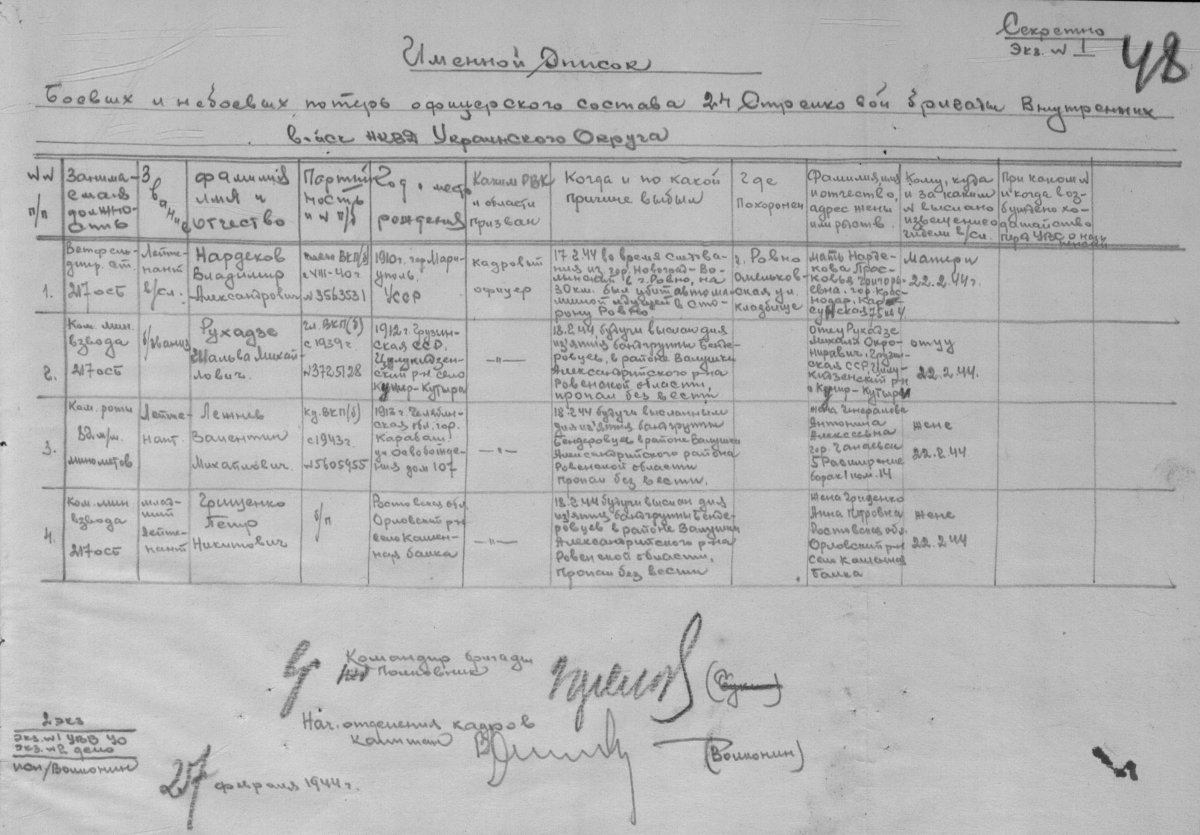 Секретно
Экз. № 1
48
Именной Список
Боевых и небоевых потерь офицерского состава 24 Стрелковой бригады Внутренних
войск НКВД Украинского Округа
№№ п/п
Занима-
емая
должно-
сть
Звание
Фамилия
имя и
отчество
Партий
ность
и № п/б
Год, место
рождения
Каким РВК
и области
призван
Когда и по какой
причине выбыл
Где
Похоронен
Фамилия, имя
и отчество,
адрес жены
или родств.
Кому, куда
и за каким
№ выслано
извещение о
гибели в/сл.
При каком №
и когда воз-
буждено хо-
датайство
перед УВС о назн.
1.
Ветфель-
дшер ст.
217 осб
Лейте-
нант
в/сл.
Нардеков
Владимир
Александрович
член ВКП(б)
с VIII-40 г.
№ 3563531
1910 г. гор. Мари-
уполь,
УССР
кадровый
офицер
17.2.44 во время следова-
ния из гор. Новоград-Во-
лынский в г. Ровно, на
30 км. был убит автома-
шиной идущей в сто-
рону Ровно
г. Ровно
ская ул.
кладбище
мать Нарде-
кова Прас-
ковья Григорь-
евна. гор. Крас-
нодар,
матери
22.2.44 г.
2.
Ком. мин.
взвода
217 осб
б/звания
Рухадзе
Шалва Михай-
лович.
чл. ВКП(б)
с 1939 г.
№ 3725128
1912 г. Грузин-
ская ССР.
Цулукидзен-
ский р-н село
Кухир-Кутыра
—"—
18.2.44 будучи выслан для
из'ятия бандгруппы Бенде-
ровцев, в районе Валушки
Александрийского р-на
Ровенской области,
пропал без вести
отец Рухадзе
Михаил
Грузин-
ская ССР, Цулу-
кидзенский р-н
с Кухир-Кутыри
отцу
22.2.44.
3.
Ком. роты
82 м/м.
минометов
Лейте-
нант.
Лежнев
Валентин
Михайлович.
кд. ВКП(б)
с 1943 г.
№ 5605955
1913 г. Челябин-
ская обл. гор.
Карабаш,
ул. Освобожде-
ния дом 107
—"—
18.2.44 будучи высланным
для из'ятия бандгруппы
Бендеровцев в районе Валушки
Александрийского района
Ровенской области
пропал без вести.
жена Генералова
Антонина
Алексеевна
гор.
5 Расширение
барак 1 ком. 14
жене
22.2.44
4.
Ком. мин
взвода
217 осб
млад-
ший
лейте-
нант
Гриценко
Петр
Никитович
б/п
Ростовская обл.
Орловский р-н
село Камен-
ная балка
—"—
18.2.44 будучи выслан для
из'ятия бандгруппы Бенде-
ровцев, в районе Валушки
Александрийского р-на
Ровенской области,
пропал без вести
жена Гриценко
Анна Петровна
Ростовская обл.
Орловский р-н
село Каменная
балка
жене
22.2.44
Командир бригады
Полковник
Нач. отделения кадров
капитан
(Волконин)
2 экз
экз. №1 УВВ УО
экз. №2 дело
исп/Волконин
27 февраля 1944 г.